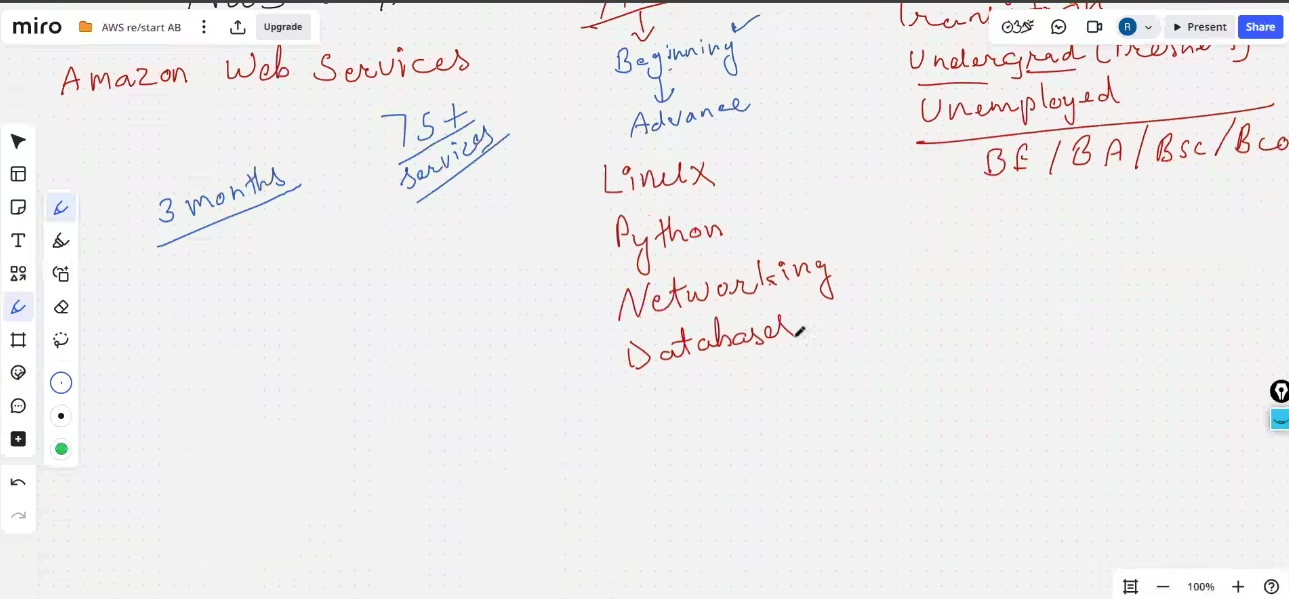 miro
AWS re/start AB
Upgrade
Present
Share
Amazon Web Services
75+
services
3 months
Beginning
Advance
Linux
Python
Networking
Databases
Undergrad
Unemployed
BE / BA / Bsc / Bco
R
T
100%